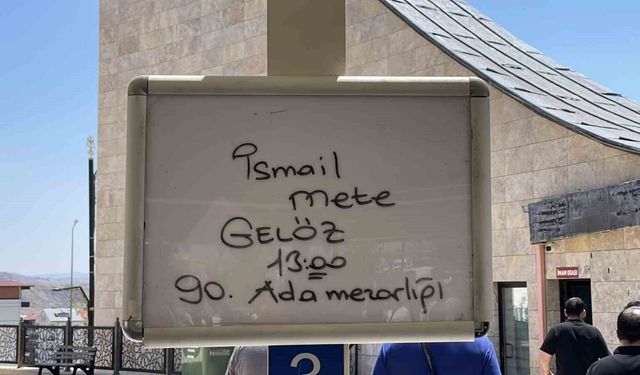 İsmail
Mete
GELÖZ
13.00
90. Ada mezarlığı
İMAM ODASI
2